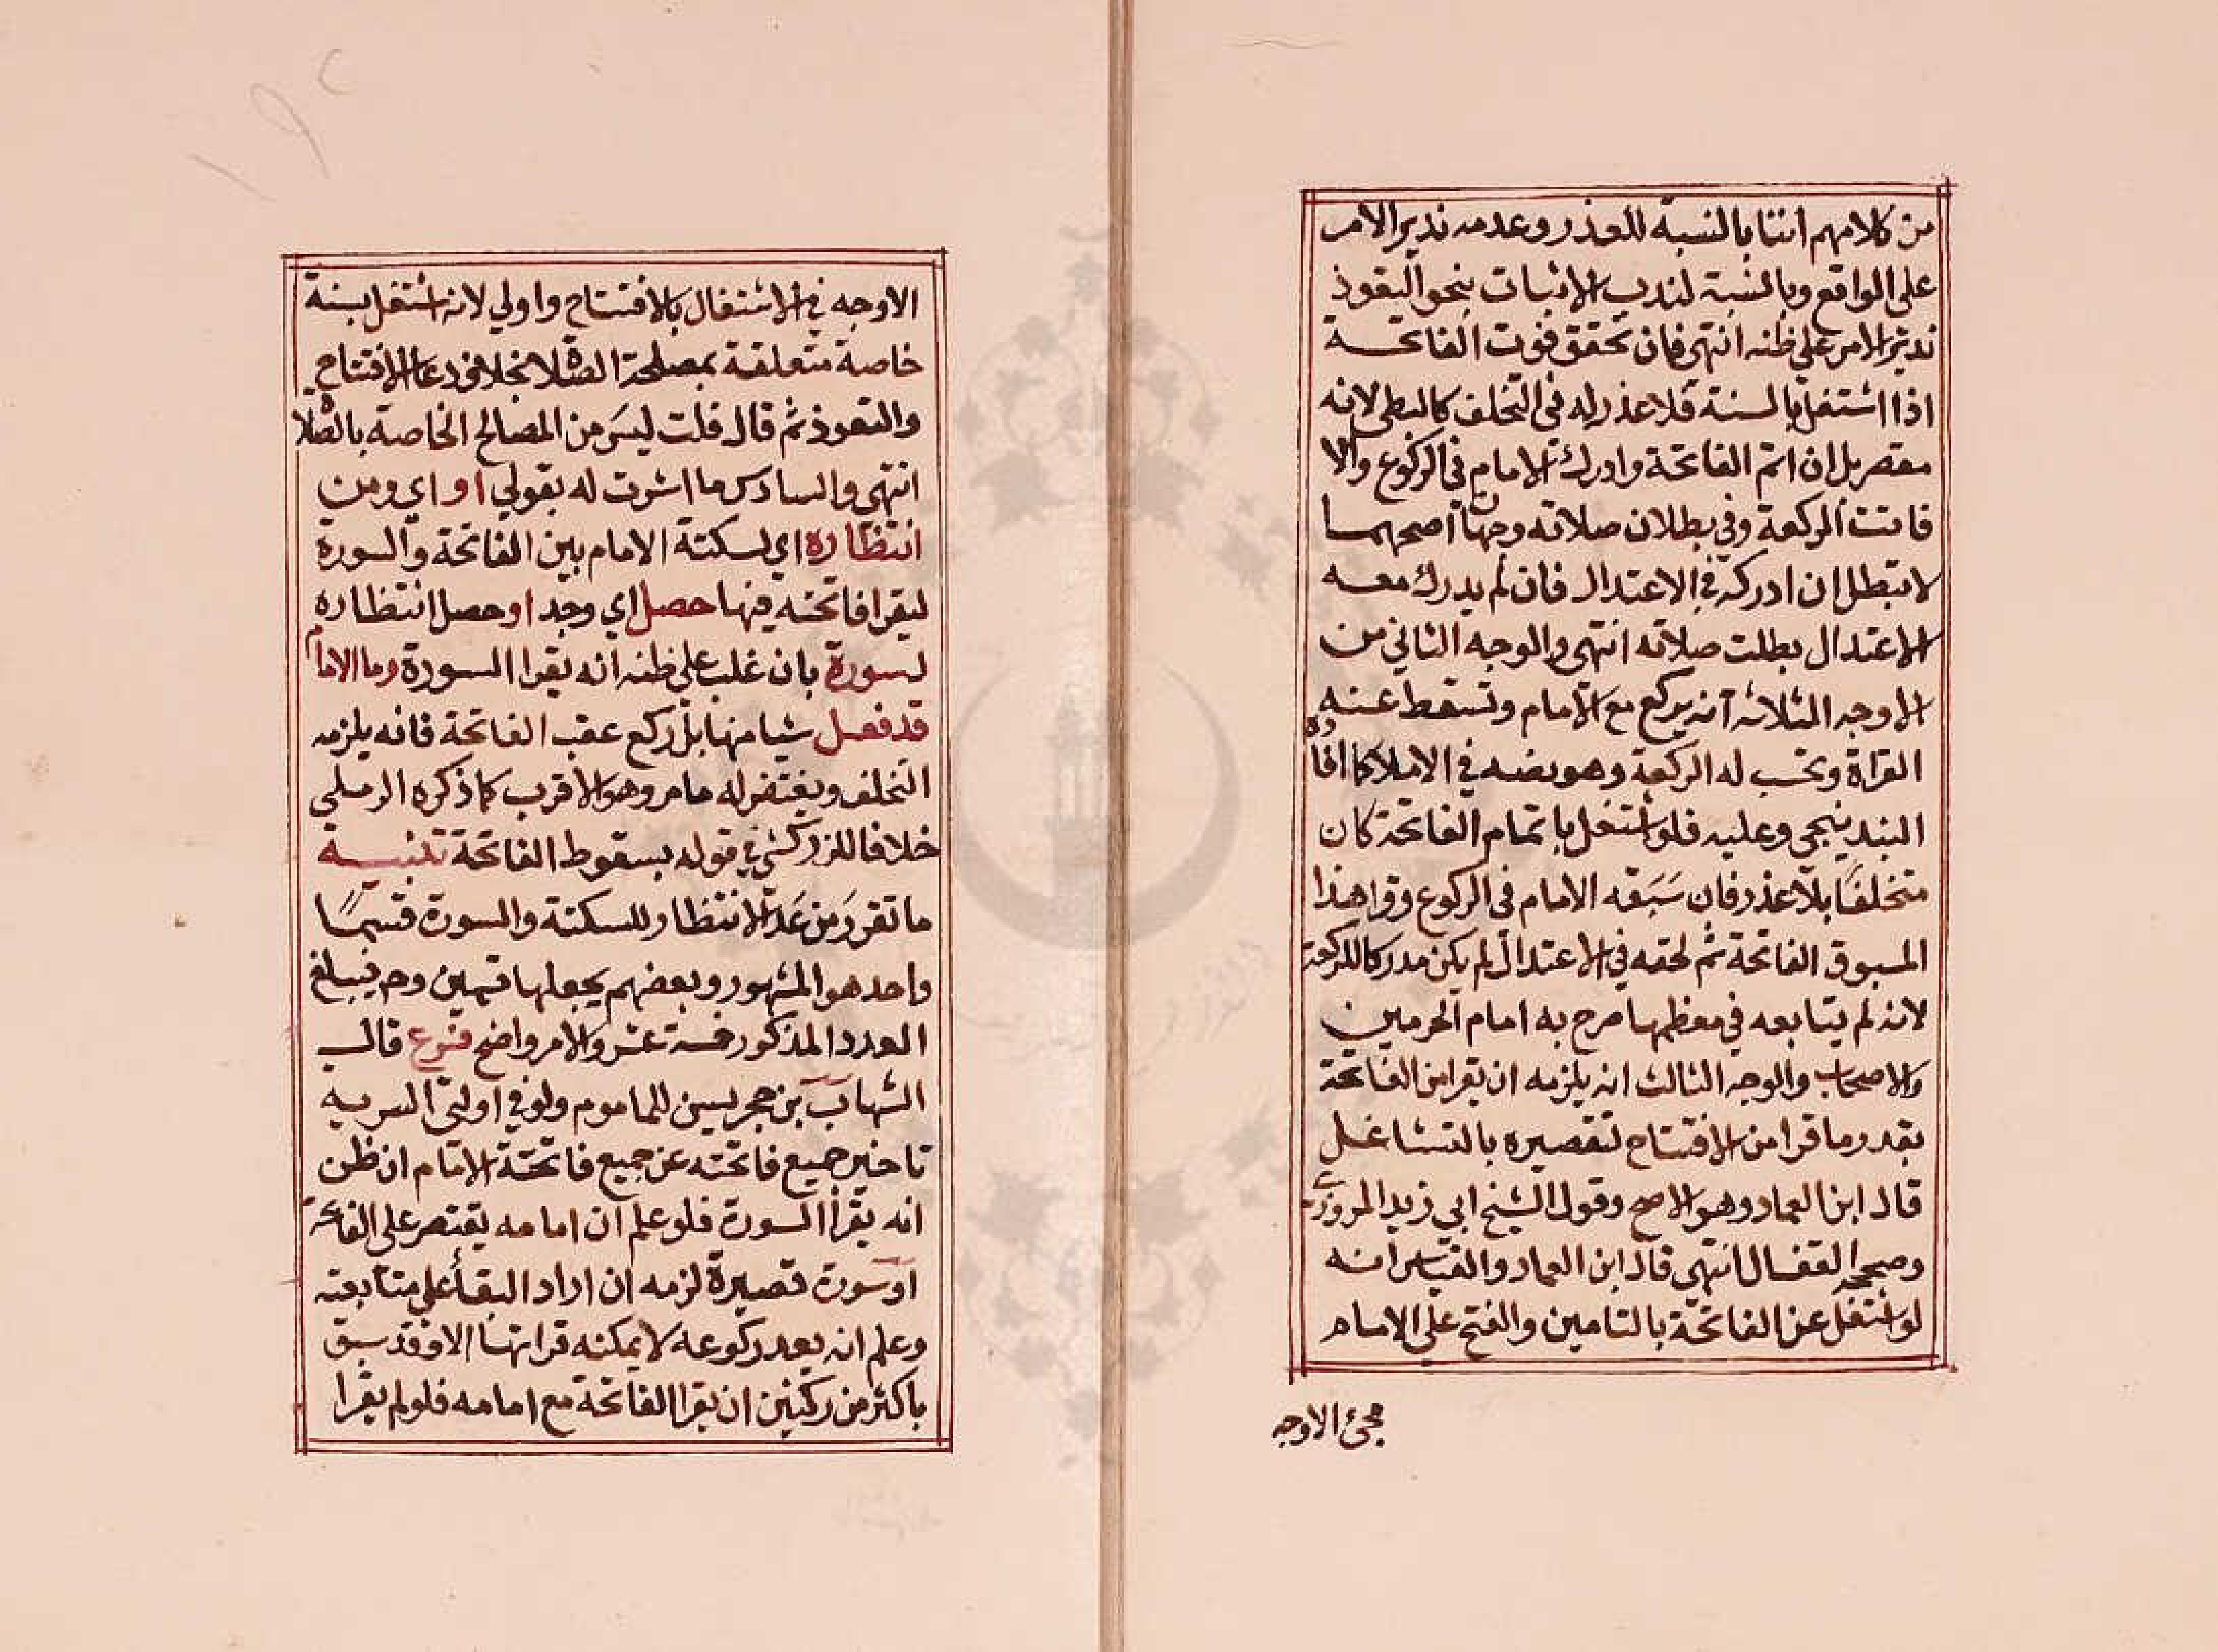 من كلامهم اننا بالنسبة للعذر وعدمه ندير الامر
على الواقع وبالنسبة لندب الاتيات بنحو التعوذ
ندير الامر على ظنه انتهى فان تحقق فوت الفاتحة
اذا اشتغل بالسنة فلا عذر له في التخلف كالبطى لانه
مقصر بل ان اتم الفاتحة وادرك الامام في الركوع والا
فاتت الركعة وفي بطلان صلاته وجهان اصحهما
لا تبطل ان ادركه في الاعتدال فان لم يدرك معه
الاعتدال بطلت صلاته انتهى والوجه الثاني من
الاوجه الثلاثه انه يركع مع الامام وتسقط عنه
القراة وتحسب له الركعة وهو نصه في الاملا كما افاده
البندنيجي وعليه فلو اشتغل باتمام الفاتحة كان
متخلفا بلا عذر فان سبقه الامام في الركوع وقرا هذا
المسبوق الفاتحة ثم لحقه في الاعتدال لم يكن مدركا للركعة
لانه لم يتابعه في معظمها صرح به امام الحرمين
والاصحاب والوجه الثالث انه يلزمه ان يقرا من الفاتحة
بقدر ما قرا من الافتتاح لتقصيره بالتشاغل
قال ابن العماد وهو الاصح وقول الشيخ ابي زيد المروزي
وصححه القفال انتهى قال ابن العماد والقياس انه
لو اشتغل عن الفاتحة بالتامين والفتح على الامام
مجئ الاوجه
الاوجه في الاشتغال بالافتتاح واولي لانه اشتغل بسنة
خاصة متعلقة بمصلحة الصلاة بخلاف دعا الافتتاح
والتعوذ ثم قال قلت ليس من المصالح الخاصة بالصلاة
انتهى والسادس ما اشرت له بقولي او اي ومن
انتظاره اي لسكتة الامام بين الفاتحة والسورة
ليقرا فاتحته فيها حصل اي وجد او حصل انتظاره
لسورة بان غلب على ظنه انه يقرا السورة وما الامام
قد فعل شيا منها بل ركع عقب الفاتحة فانه يلزمه
التخلف ويغتفر له ما مر وهو الاقرب كما ذكره الرملي
خلافا للزركشي في قوله بسقوط الفاتحة تنبيه
ما تقرر من عد الانتظار للسكتة والسورة قسما
واحد هو المشهور وبعضهم يجعلها قسمين وح فيبلغ
العدد المذكور خمسة عشر والامر واضح فرع قال
الشهاب بن حجر يسن للماموم ولو في اولتي السرية
تاخير جميع فاتحته عن جميع فاتحة الامام ان ظن
انه يقرا السورة فلو علم ان امامه يقتصر على الفاتحة
او سورة قصيرة لزمه ان اراد البقا على متابعته
وعلم انه بعد ركوعه لا يمكنه قراتها الا وقد سبق
باكثر من ركنين ان يقرا الفاتحة مع امامه فلو لم يقرا